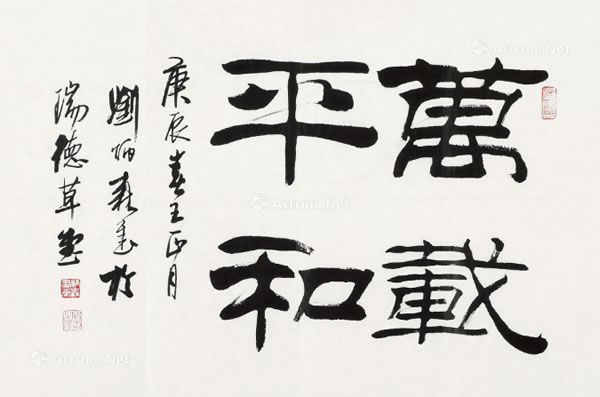 萬載
平和
庚辰春王正月
劉炳森書於
瑞德草堂
Artron.Net
Artron.Net
Artron.Net